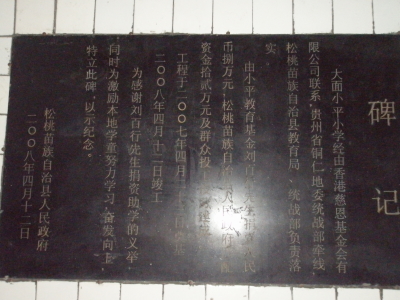 碑记
大面小平小学经由香港慈恩基金会有
限公司联系，贵州省铜仁地委统战部牵线，
松桃苗族自治县教育局、统战部负责落
实。
由小平教育基金刘百行先生捐人民
币捌万元，松桃苗族自治县人民政府配
资金拾贰万元及群众投
工程于二00七年四月
二00八年四月十二日竣工
为感谢刘百行先生捐资助学的义举
同时为激励本地学童努力学习，奋发向上，
特立此碑，以示纪念。
松桃苗族自治县人民政府
二00八年四月十二日